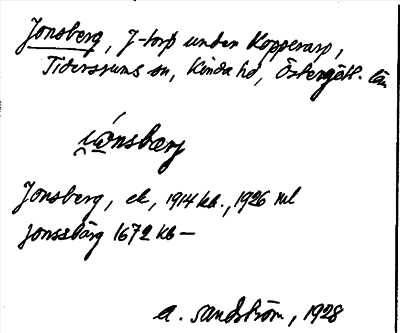 Jonsberg, J-torp under Kopparp,
Tidersrums sn, Kinda hd, Östergötl. län
Jonsberg, ek, 1914 kb., 1926 ml
Jonssbärg 1672 kb —
A. Sandström, 1928